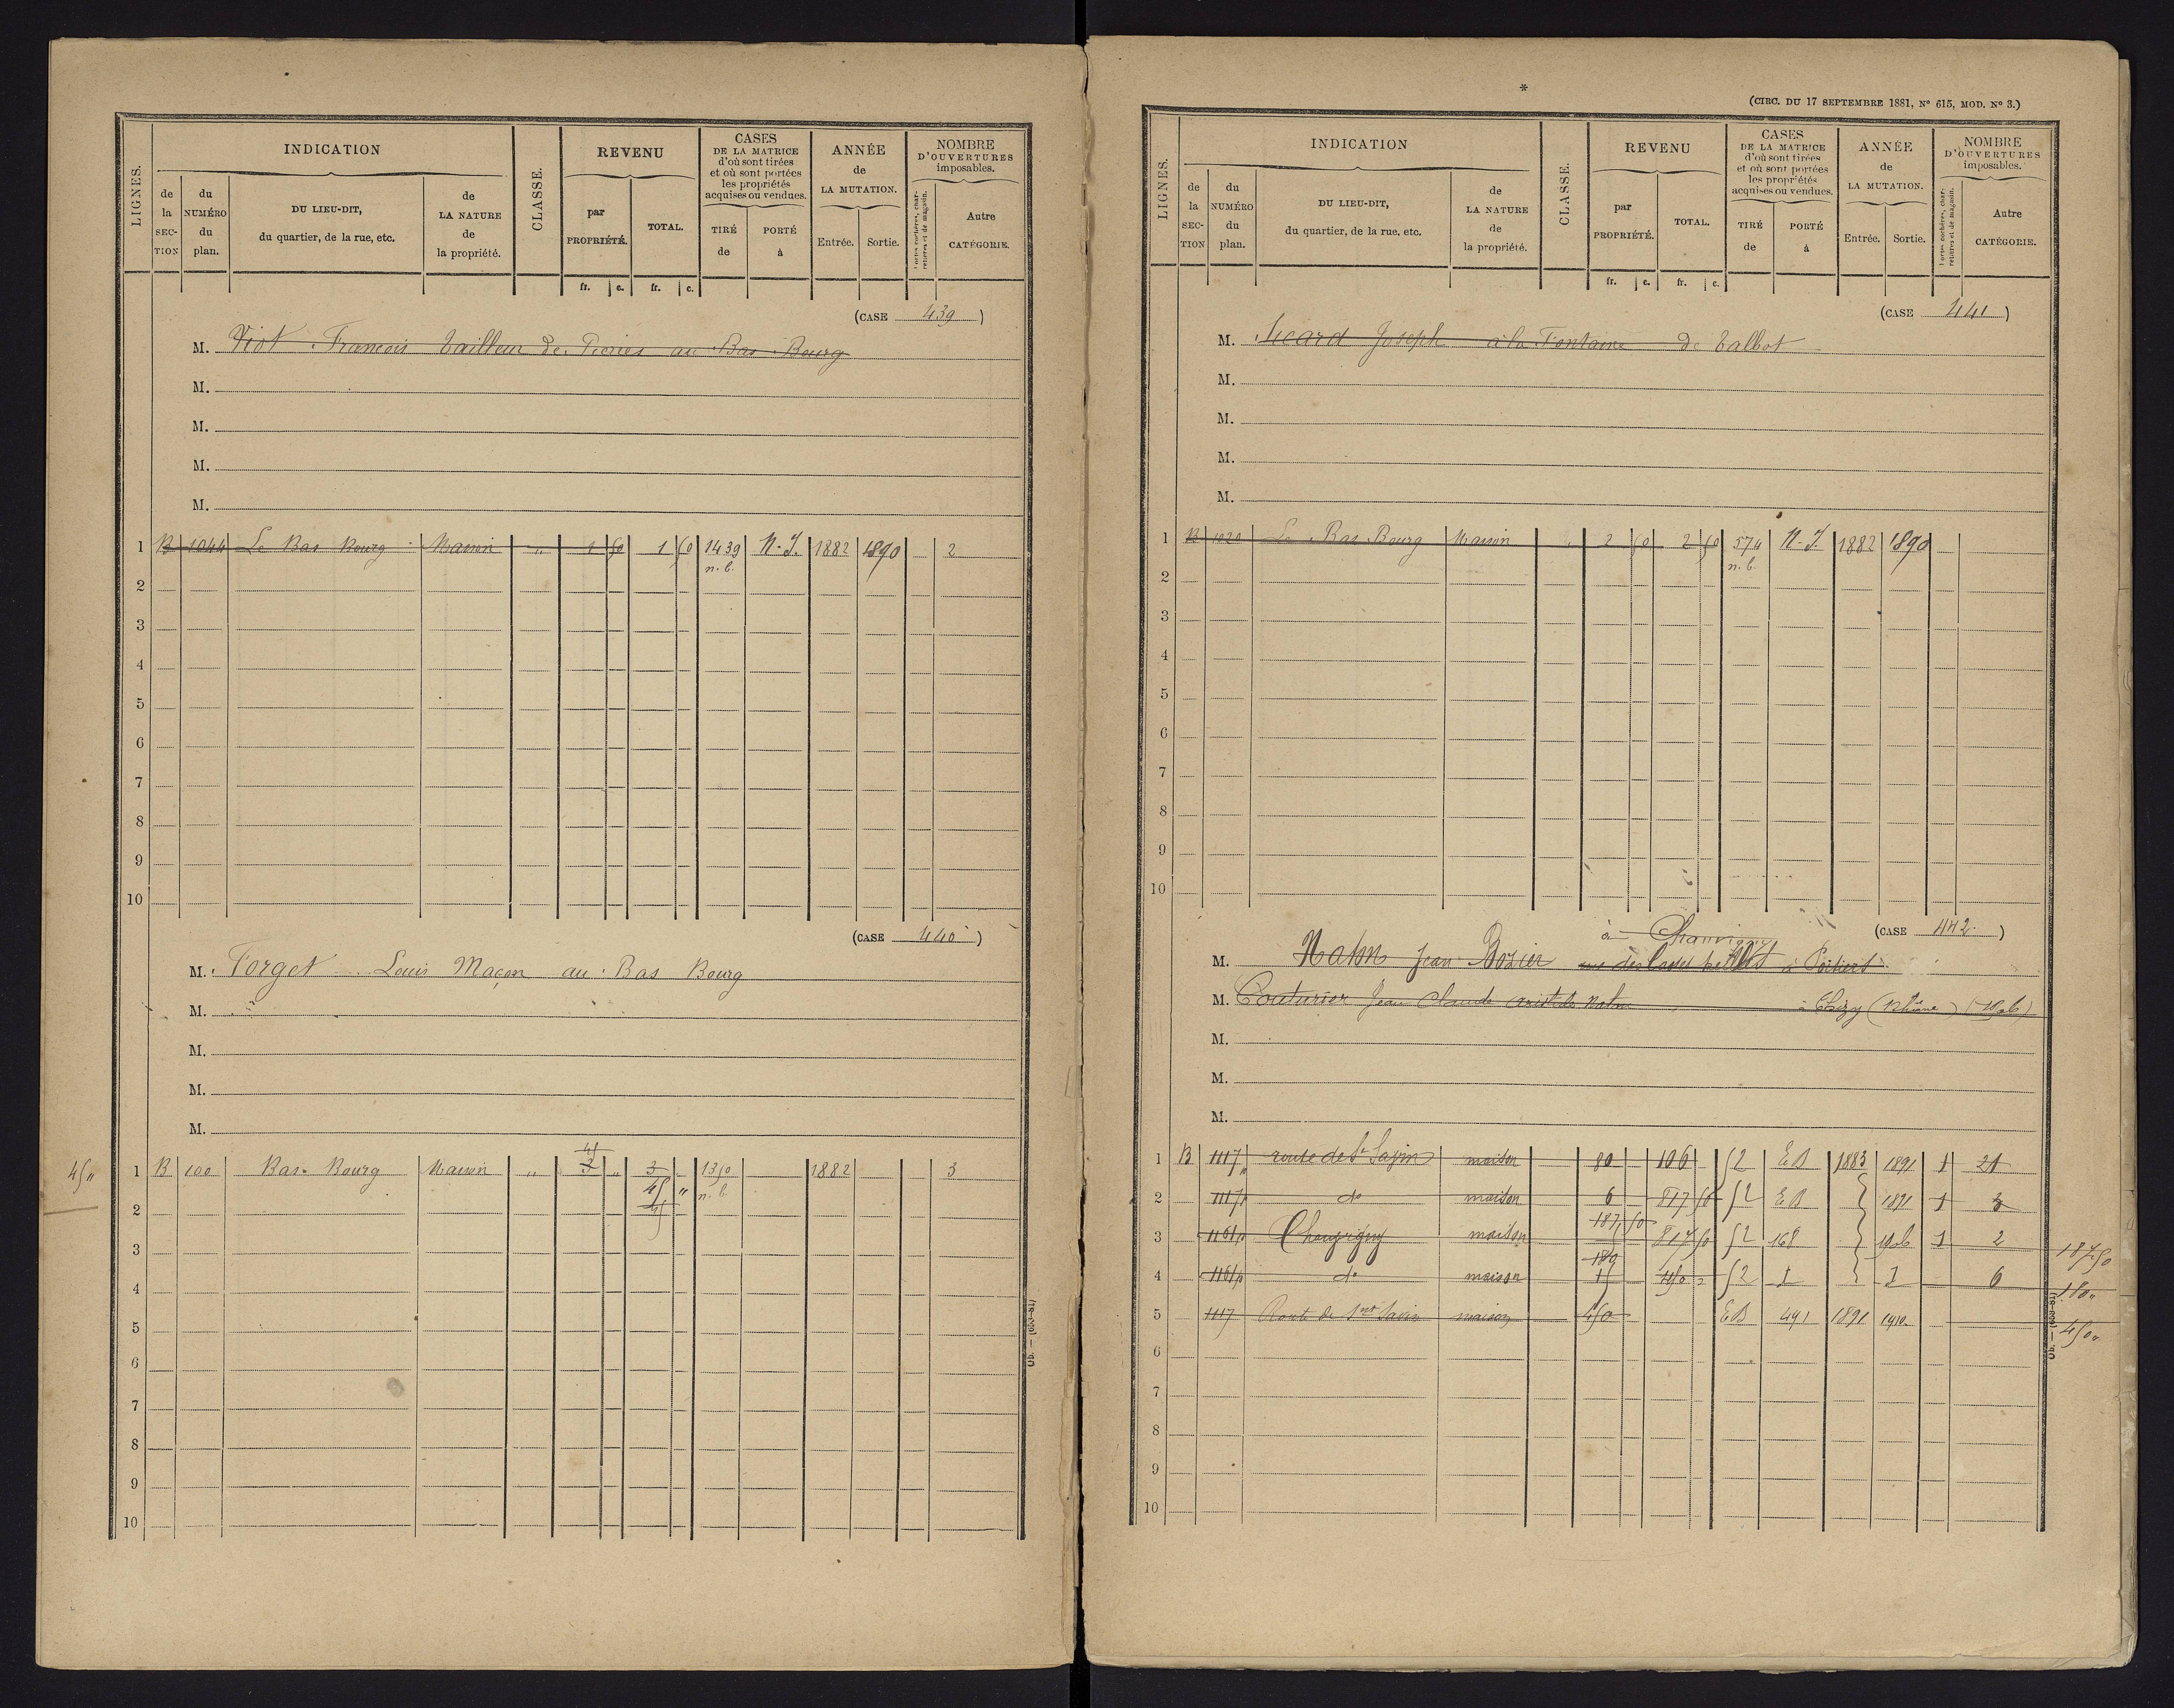 LIGNES.
INDICATION
de la SECTION
du NUMÉRO du plan.
DU LIEU-DIT, du quartier, de la rue, etc.
de LA NATURE de la propriété.
CLASSE.
REVENU
par PROPRIÉTÉ.
TOTAL.
CASES DE LA MATRICE d'où sont tirées et où sont portées les propriétés acquises ou vendues.
TIRÉ de
PORTÉ à
ANNÉE de LA MUTATION.
Entrée.
Sortie.
NOMBRE D'OUVERTURES imposables.
Portes cochères, charretières et de magasin.
Autre CATÉGORIE.
fr. c. fr. c.
(CASE 439)
M. Viot François tailleur de Pierres au Bas Bourg
M.
M.
M.
M.
1 B 1044 Le Bas Bourg Maison " 1 50 1 50 1439 N-I. 1882 1890 2
n. b.
2
3
4
5
6
7
8
9
10
(CASE 440)
M. Forget Louis Maçon au Bas Bourg
M.
M.
M.
M.
45"
45
1 B 100 Bas-Bourg Maison " 3 " 3 1350 1882 3
45 " n. b.
45
2
3
4
5
6
7
8
9
10
Ob. — (609-81)
*
(CIRC. DU 17 SEPTEMBRE 1881, N° 615, MOD. N° 3.)
LIGNES.
INDICATION
de la SECTION
du NUMÉRO du plan.
DU LIEU-DIT, du quartier, de la rue, etc.
de LA NATURE de la propriété.
CLASSE.
REVENU
par PROPRIÉTÉ.
TOTAL.
CASES DE LA MATRICE d'où sont tirées et où sont portées les propriétés acquises ou vendues.
TIRÉ de
PORTÉ à
ANNÉE de LA MUTATION.
Entrée.
Sortie.
NOMBRE D'OUVERTURES imposables.
Portes cochères, charretières et de magasin.
Autre CATÉGORIE.
fr. c. fr. c.
(CASE 441)
M. Sicard Joseph à la Fontaine de Talbot
M.
M.
M.
M.
1 B 1020 Le Bas Bourg Maison 2 50 2 50 574 N-I. 1882 1890
n. b.
2
3
4
5
6
7
8
9
10
à Chauvigny
(CASE 442)
M. Jean Bozier à Poitiers
M. Couturier Jean Claude Aristide à Thizy (Rhône) (1906)
M.
M.
M.
1 B 1117 route de St Savin maison 80 106 52 EB 1883 1891 1 21
2 1117p do maison 6 817 50 52 EB 1891 1 3
187 50
3 1161p Chauvigny maison 817 50 52 168 1906 1 2 187 50
180
4 1161p do maison 15 450 52 I I 6 180"
5 1117 Route de Snt Savin maison 450 EB 491 1891 1910 450"
6
7
8
9
10
Ob. — (609-81)